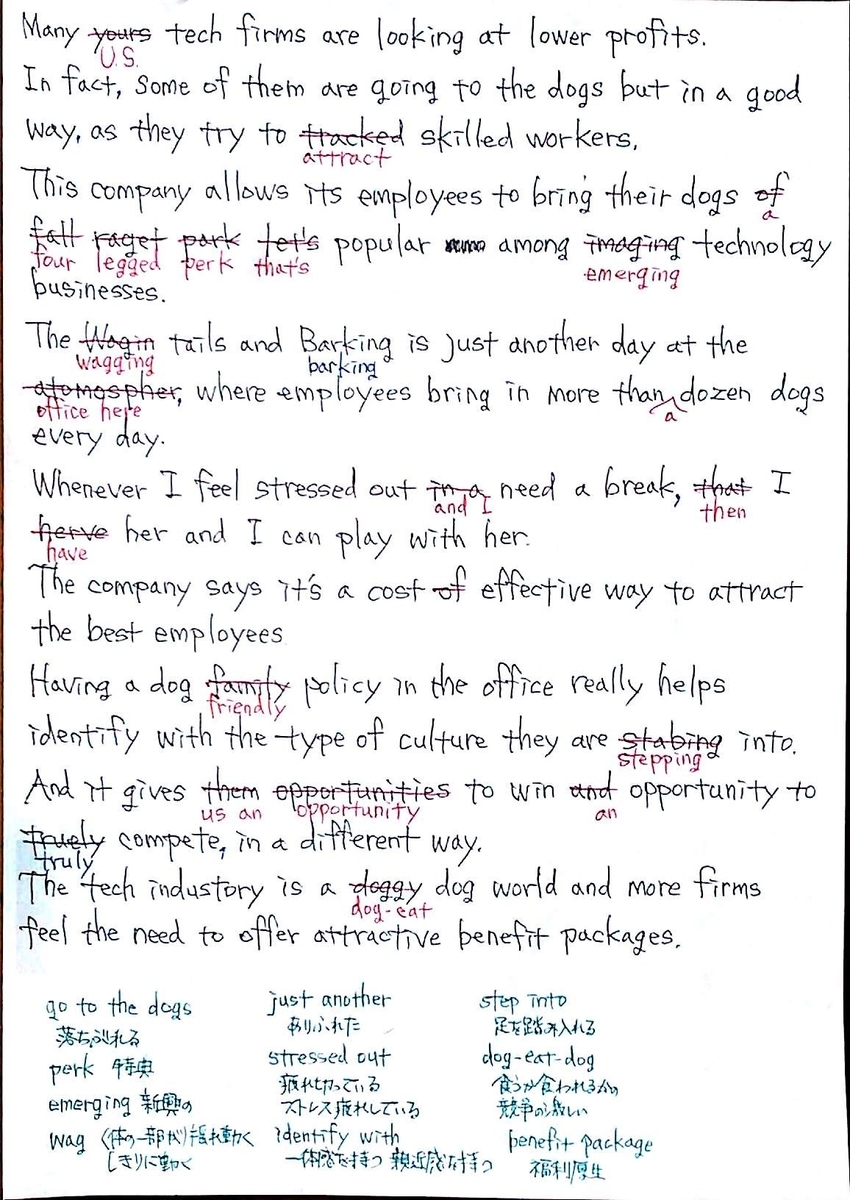 Many yours tech firms are looking at lower profits.
U.S.
In fact, some of them are going to the dogs but in a good
way, as they try to tracked skilled workers,
attract
This company allows its employees to bring their dogs of
a
fall raget park let's popular among imaging technology
four legged perk that's emerging
businesses.
The Wagin tails and Barking is just another day at the
wagging barking
atomospher, where employees bring in more than dozen dogs
office here a
every day.
Whenever I feel stressed out in a need a break, that I
and I then
herve her and I can play with her.
have
The company says it's a cost of effective way to attract
the best employees
Having a dog family policy in the office really helps
friendly
identify with the type of culture they are stabing into.
stepping
And it gives them opportunities to win and opportunity to
us an opportunity an
truely compete, in a different way.
truly
The tech industory is a doggy dog world and more firms
dog-eat
feel the need to offer attractive benefit packages.
go to the dogs just another step into
落ちぶれる ありふれた 足を踏み入れる
perk 特典 stressed out dog-eat-dog
疲れ切っている 食うか食われるかの
emerging 新興の ストレス疲れしている 競争の激しい
wag (体の一部が)揺れ動く identify with benefit package
しきりに動く 一体感を持つ 親近感を持つ 福利厚生